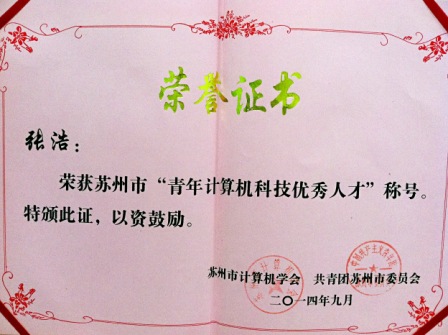 荣誉证书
张浩：
荣获苏州市“青年计算机科技优秀人才”称号。
特颁此证，以资鼓励。
苏州市计算机学会 共青团苏州市委员会
二〇一四年九月